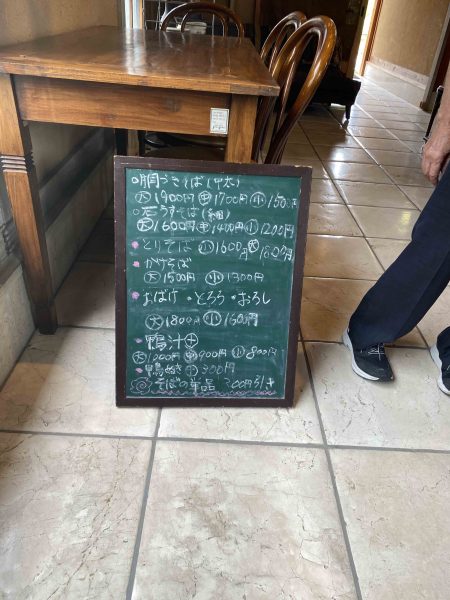 胴づきそば(中太)
大1900円 中1700円 小1500
石うすそば(細)
大1600円 中1400円 小1200円
とりそば 小1600円 大1800円
かけそば
大1500円 小1300円
おばけ・とろろ・おろし
大1800円 小1600円
鴨汁+
大1000円 中900円 小800円
300円
そばの単品 200円引き